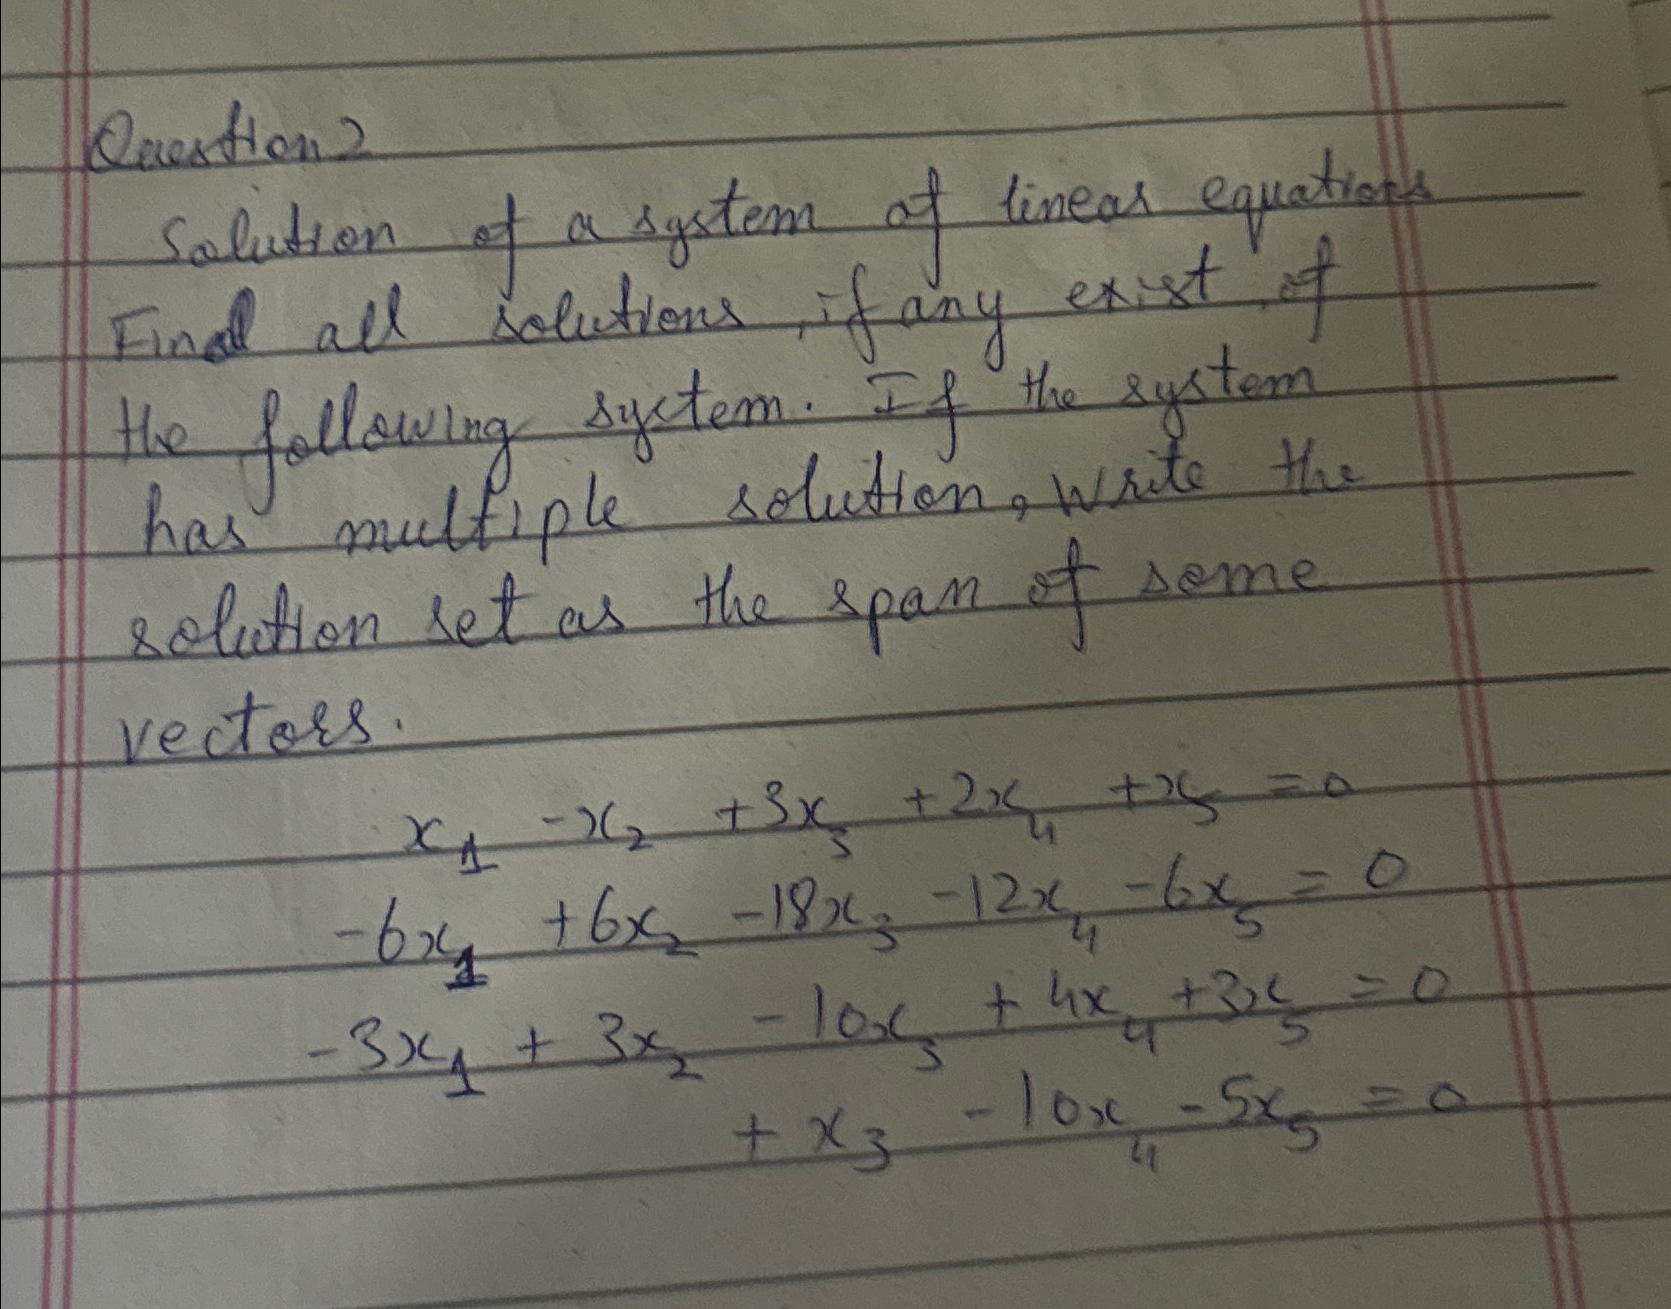 Question 2
Solution of a system of linear equations
Find all solutions, if any exist, of
the following system. If the system
has multiple solution, write the
solution set as the span of some
vectors.
x₁ -x₂ +3x₃ +2x₄ +x₅ =0
-6x₁ +6x₂ -18x₃ -12x₄ -6x₅ = 0
-3x₁ + 3x₂ -10x₃ + 4x₄ +3x₅ = 0
+ x₃ -10x₄ -5x₅ = 0